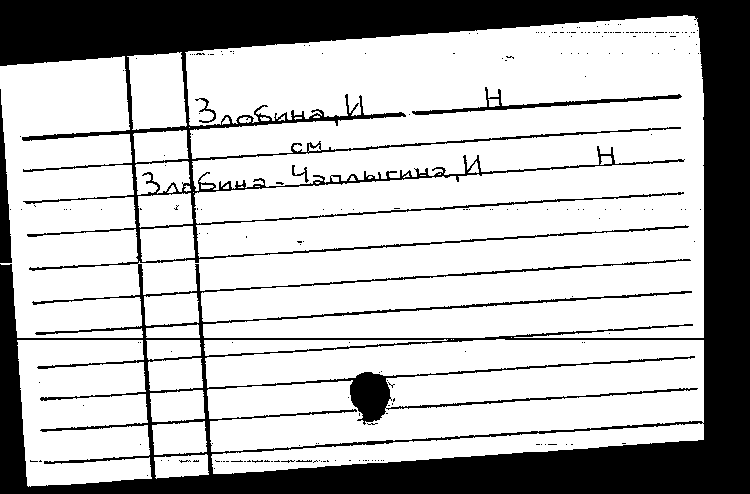 Злобина, И Н
см.
Злобина-Чаплыгина, И Н